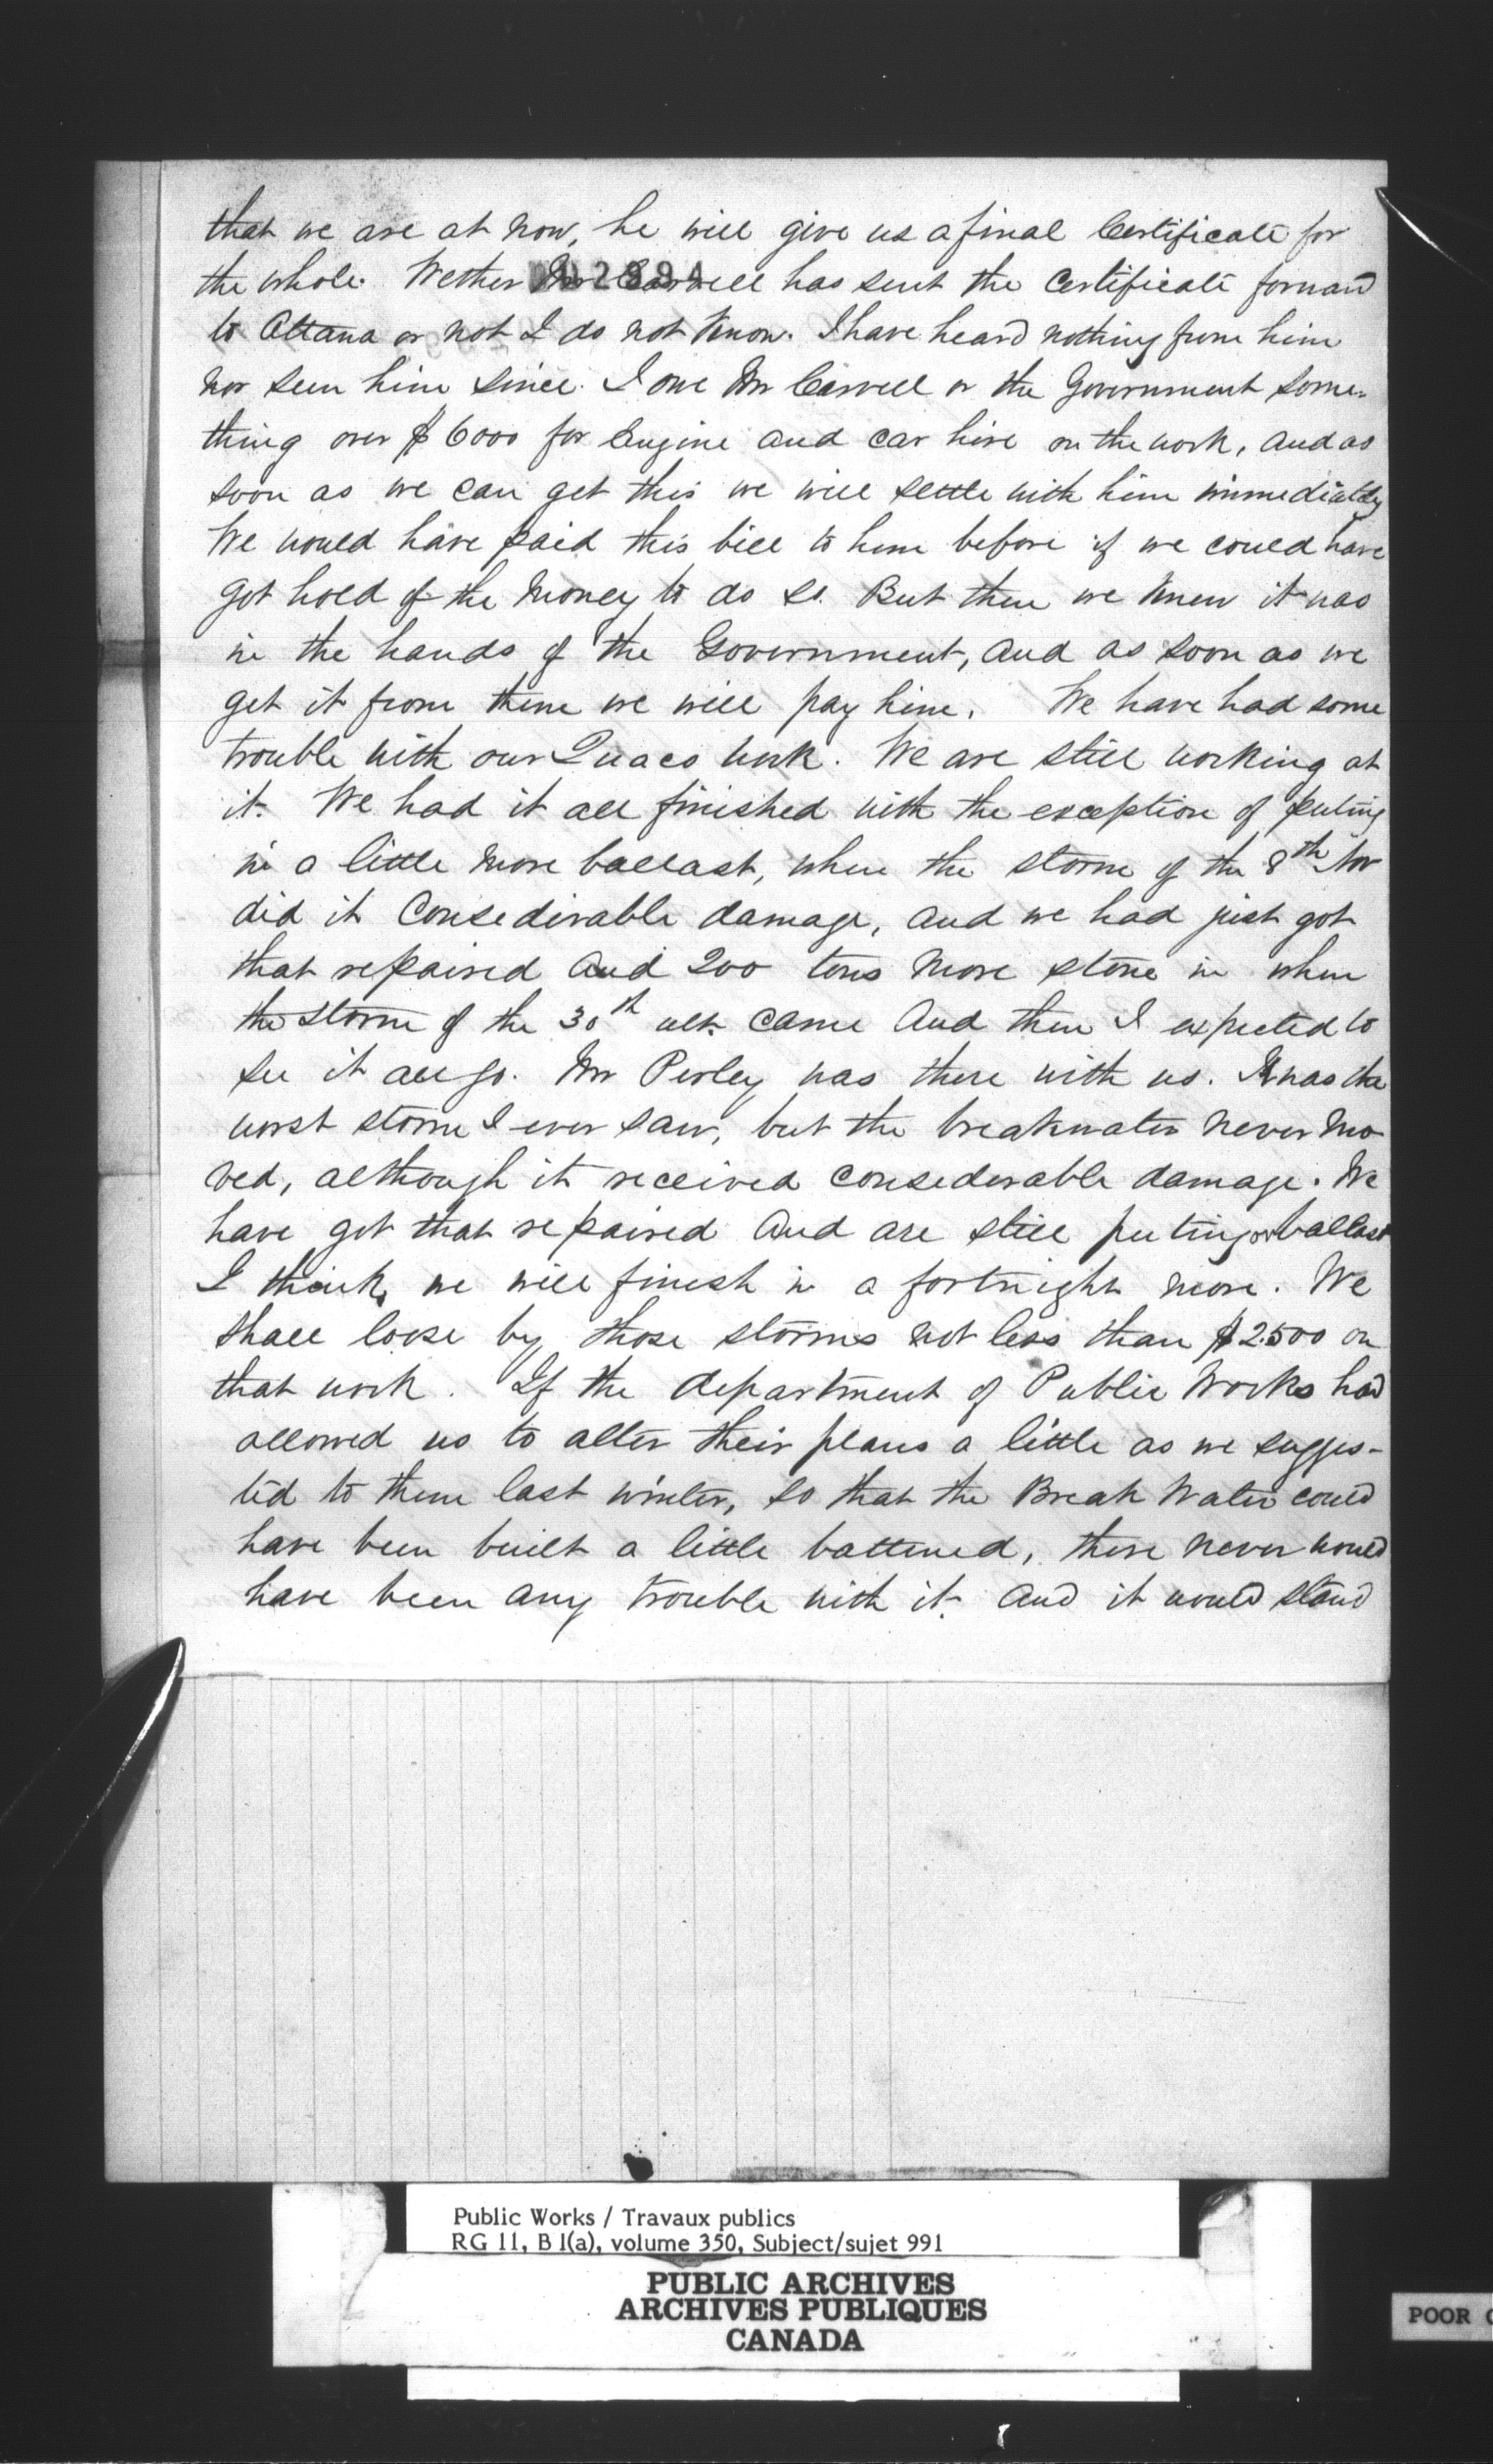 that we are at now, he will give us a final Certificate for
the whole. Wether Mr Carvell has sent the Certificate forward
to Ottawa or not I do not know. I have heard nothing from him
nor seen him since. I owe Mr Carvell or the Government some-
thing over $6000 for Engine and car hire on the work, and as
soon as we can get this we will settle with him immediately
We would have paid this bill to him before if we could have
got hold of the money to do so. But then we knew it was
in the hands of the Government, and as soon as we
get it from them we will pay him. We have had some
trouble with our Quaco work. We are still working at
it. We had it all finished with the exception of puting
in a little more ballast, when the storm of the 8th Nov
did it Consedirable damage, and we had just got
that repaired and 200 tons more stone in when
the storm of the 30th ult. came and then I expected to
see it all go. Mr Perley was there with us. It was the
worst storm I ever saw, but the breakwater never mo-
ved, although it received considerable damage. We
have got that repaired and are still puting in ballast
I think we will finish in a fortnight more. We
shall loose by those storms not less than $2500 on
that work. If the department of Public Works had
allowed us to alter their plans a little as we sugges-
ted to them last winter, so that the Break Water could
have been built a little battered, there never would
have been any trouble with it. And it would stand
Public Works / Travaux publics
RG 11, B 1(a), volume 350, Subject/sujet 991
PUBLIC ARCHIVES
ARCHIVES PUBLIQUES
CANADA
POOR